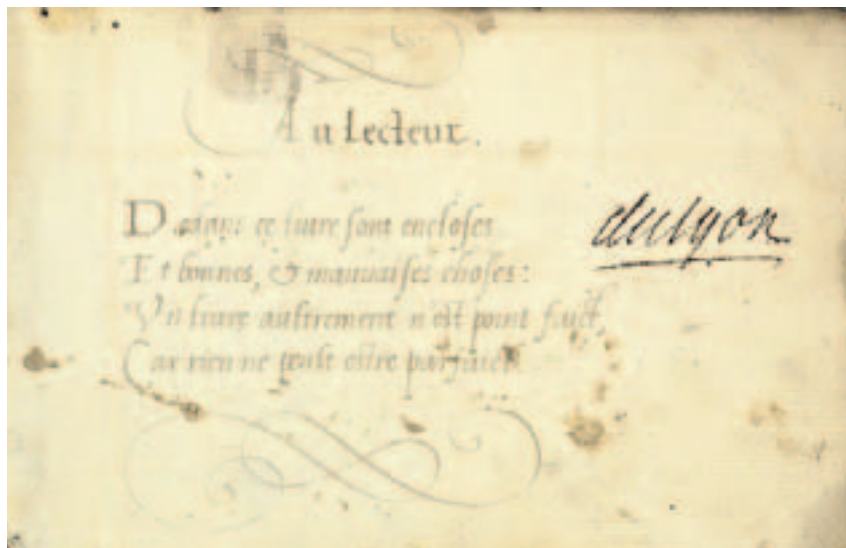 Au Lecteur.
Dedans ce livre sont encloses
Et bonnes, & mauvaises choses:
Un livre aultrement n'est point faict,
Car rien ne peult estre
dulyon